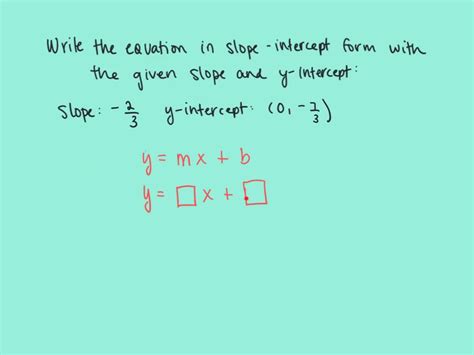 Write the equation in slope-intercept form with
the given slope and y-intercept:
slope: -2/3 y-intercept: (0, -7/3)
y = mx + b
y = □ x + □